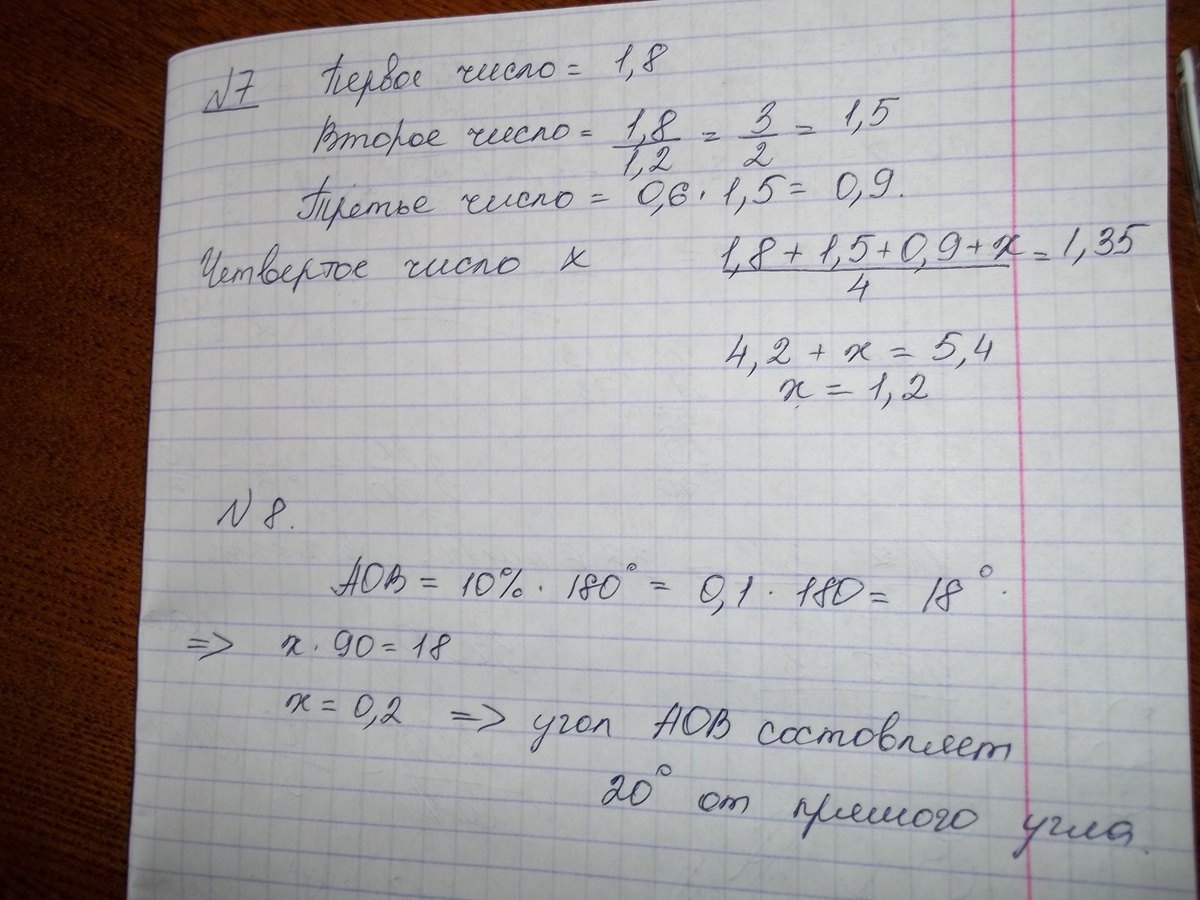 N7 Первое число = 1,8
Второе число = 1,8/1,2 = 3/2 = 1,5
Третье число = 0,6 · 1,5 = 0,9.
Четвертое число x (1,8 + 1,5 + 0,9 + x)/4 = 1,35
4,2 + x = 5,4
x = 1,2
N 8.
AOB = 10% · 180° = 0,1 · 180 = 18°.
=> x · 90 = 18
x = 0,2 => угол AOB состовляет
20° от прямого угла.